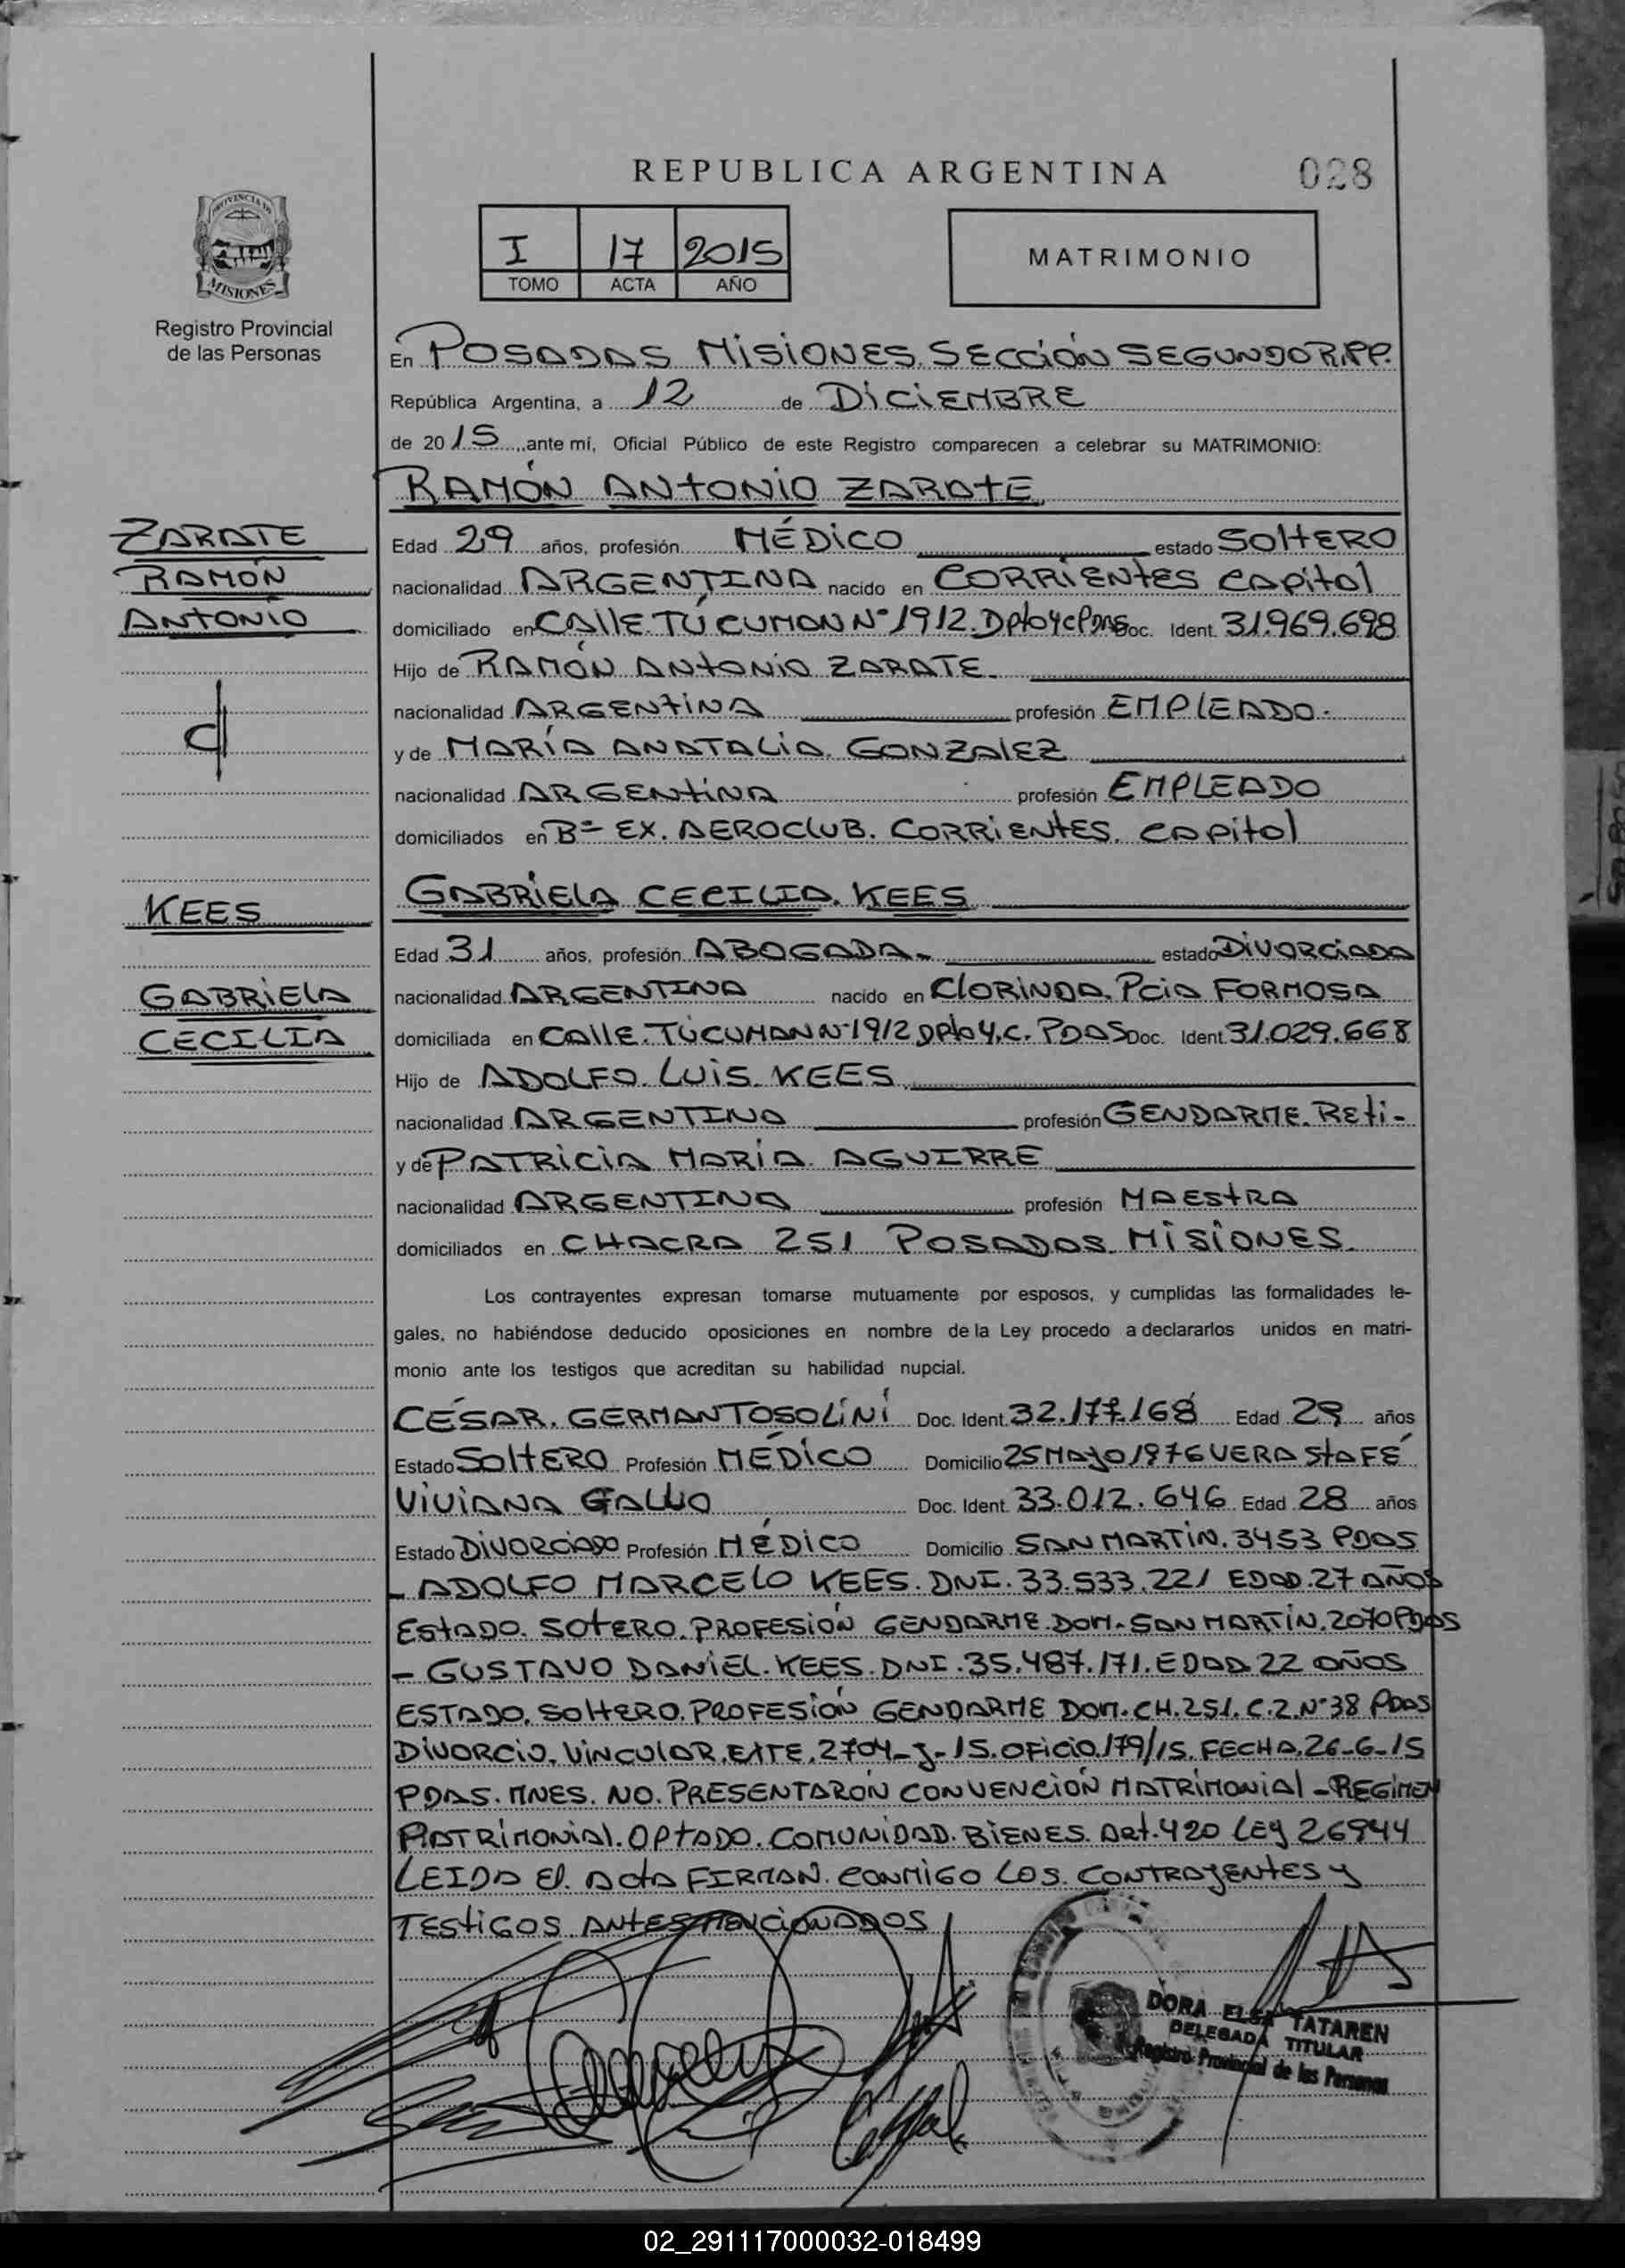 REPUBLICA ARGENTINA
028
PROVINCIA DE
MISIONES
Registro Provincial
de las Personas
I 17 2015
TOMO ACTA AÑO
MATRIMONIO
En POSADAS MISIONES. SECCIÓN SEGUNDO R.P.P.
República Argentina, a 12 de DICIEMBRE
de 2015, ante mí, Oficial Público de este Registro comparecen a celebrar su MATRIMONIO:
RAMÓN ANTONIO ZARATE
ZARATE
RAMÓN
ANTONIO
Edad 29 años, profesión MÉDICO estado SOltERO
nacionalidad ARGENTINA nacido en CORRIENTES CAPitAl
domiciliado en CAllE TÚCUMAN Nº 1912. Dpto 4c PDAS Doc. Ident. 31.969.698
Hijo de RAMÓN ANTONIO ZARATE
nacionalidad ARGENTINA profesión EMPLEADO.
y de MARÍA ANATALIA GONZALEZ
nacionalidad ARGENTINA profesión EMPLEADO
domiciliados en Bº EX. AEROCLUB. CORRIENTES. CAPitAl
GABRIELA CECILIA KEES
KEES
GABRIELA
CECILIA
Edad 31 años, profesión ABOGADA estado DIVORCIADA
nacionalidad ARGENTINA nacido en CLORINDA. PCIA FORMOSA
domiciliada en CALLE. TÚCUMAN Nº 1912 DPto 4.C. PDAS Doc. Ident. 31.029.668
Hijo de ADOLFO LUIS KEES
nacionalidad ARGENTINO profesión GENDARME. Reti-
y de PATRICIA MARÍA AGUIRRE
nacionalidad ARGENTINA profesión MAESTRA
domiciliados en CHACRA 251 POSADAS MISIONES
Los contrayentes expresan tomarse mutuamente por esposos, y cumplidas las formalidades le-
gales, no habiéndose deducido oposiciones en nombre de la Ley procedo a declararlos unidos en matri-
monio ante los testigos que acreditan su habilidad nupcial.
CÉSAR. GERMAN TOSOLINI Doc. Ident. 32.177.168 Edad 29 años
Estado SOltERO Profesión MÉDICO Domicilio 25 MAYO 1976 VERA StA FÉ
VIVIANA GALLO Doc. Ident. 33.012.646 Edad 28 años
Estado DIVORCIADO Profesión MÉDICO Domicilio SAN MARTIN. 3453 PDAS
- ADOLFO MARCELO KEES. DNI. 33.533.221 EDAD. 27 AÑOS
EstADO. SOtERO. PROFESIÓN GENDARME. DOM. SAN MARTÍN. 2070 PDAS
- GUSTAVO DANIEL. KEES. DNI. 35.487.171. EDAD 22 AÑOS
ESTADO. SOltERO. PROFESIÓN GENDARME DOM. CH. 251. C.2. Nº 38 PDAS
DIVORCIO. VINCULAR. EXTE. 2704-J-15. OFICIO. 179/15. FECHA. 26-6-15
PDAS. MNES. NO. PRESENTARÓN CONVENCIÓN MATRIMONIAL - REGIMEN
PATRIMONIAL. OPTADO. COMUNIDAD. BIENES. ARt. 420 LEY 26944
LEIDA El. ACtA FIRMAN. CONMIGO LOS. CONTRAYENTES y
TEStIGOS ANTES MENCIONADOS
DORA ELSA TATAREN
DELEGADA TITULAR
Registro Provincial de las Personas
02_291117000032-018499